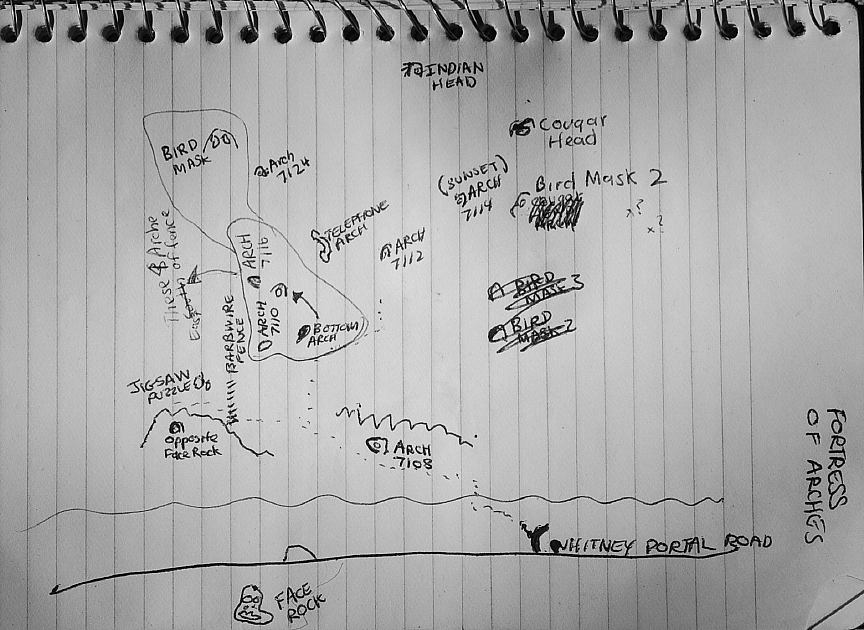 INDIAN
HEAD
Cougar
Head
BIRD
MASK
Arch
7124
(SUNSET)
ARCH
7114
Bird Mask 2
x?
x?
TELEPHONE
ARCH
ARCH
7112
These
Arche
of fence
ARCH
7116
ARCH
7110
BOTTOM
ARCH
BIRD
MASK 3
BIRD
MASK 2
BARBWIRE
FENCE
JIGSAW
PUZZLE
Opposite
Face Rock
ARCH
7108
FORTRESS
OF ARCHES
WHITNEY PORTAL ROAD
FACE
ROCK